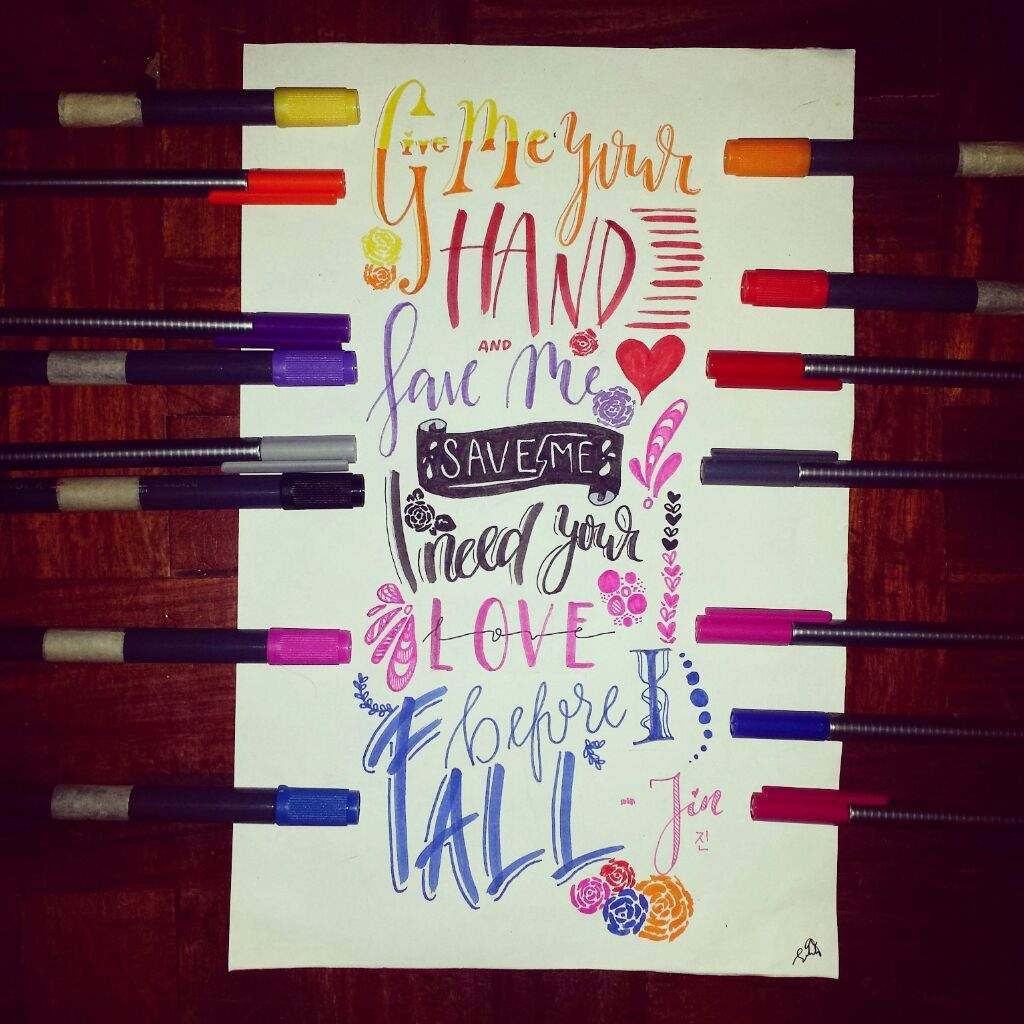 Give Me Your
HAND
AND
Save Me
SAVE ME
I need your
LOVE
love
before I
FALL
- Jin
진